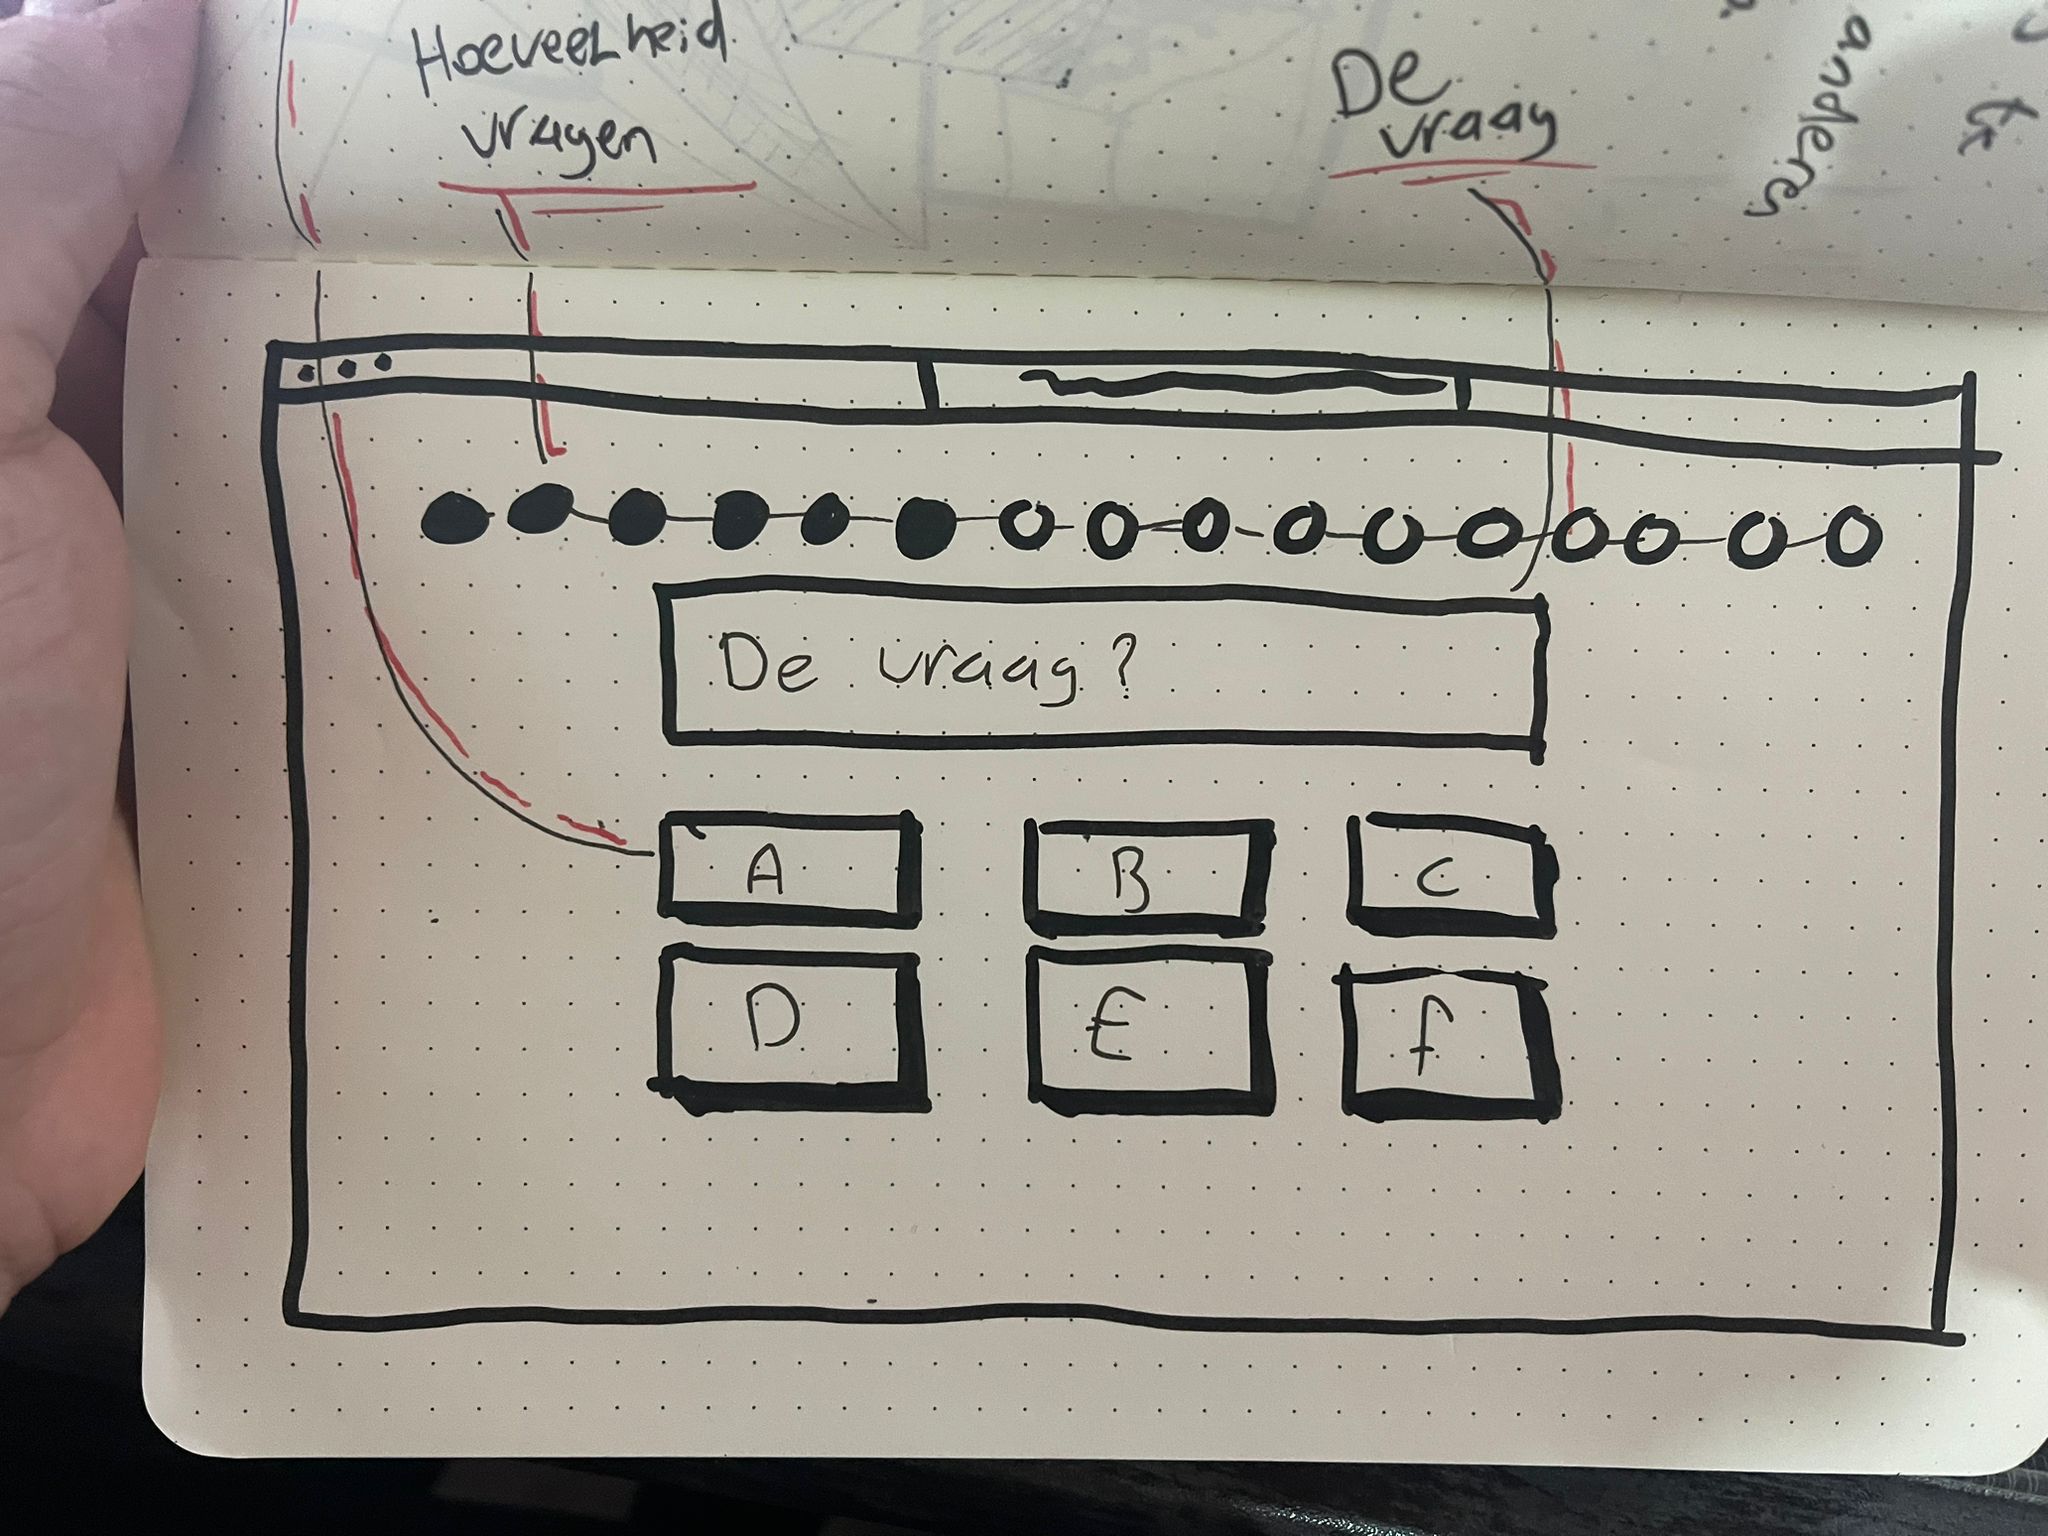 Hoeveelheid
vragen
De
vraag
anderes
De vraag?
A
B
C
D
E
f